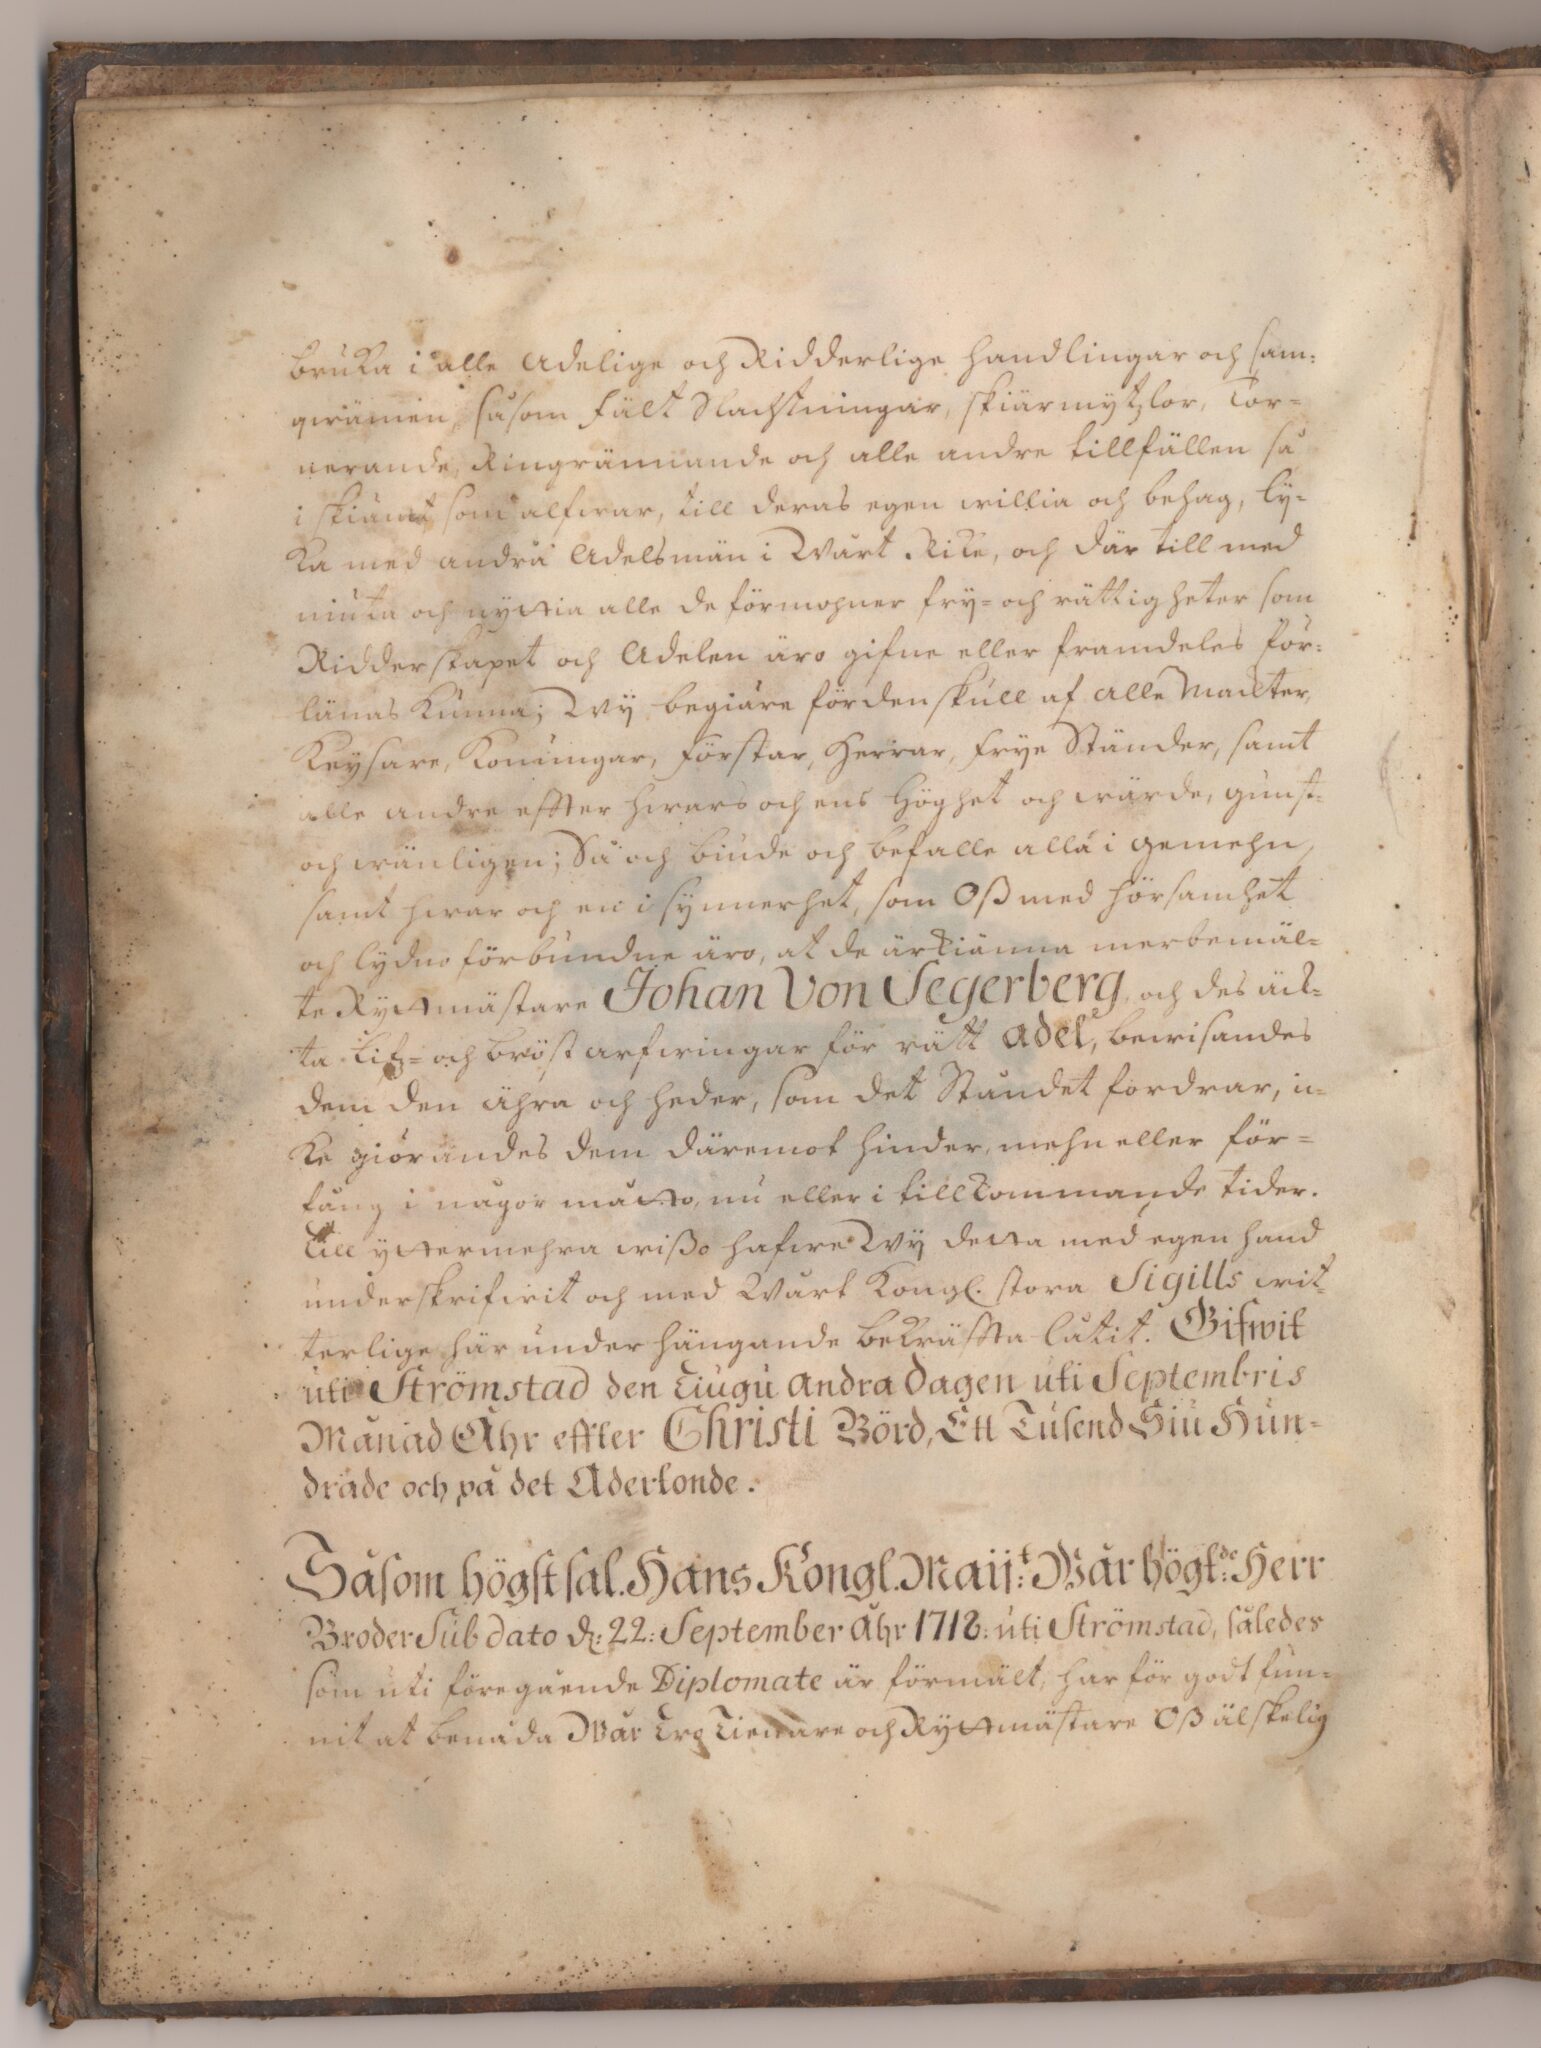 bruka i alle Adelige och Ridderlige handlingar och sam:
qwämen, såsom fält Slachtningar, skiärmytzlor, Tor=
nerande, Ringrännande och alle andre tillfällen så
i skiämt som alfwar, till deras egen willia och behag, ly=
ka med andra Adelsmän i Wårt Rike, och där till med
niuta och nyttia alle de förmohner fry= och rättigheter som
Ridderskapet och Adelen äro gifne eller framdeles för=
länas kunna; Wÿ begiäre fördenskull af alle Mackter,
Keysare, Konungar, Förstar, Herrar, Frye Ständer, samt
alle andre effter hwars och ens Höghet och wärde, gunst=
och wänligen; Så och biude och befalle alla i gemehn,
samt hwar och en i synnerhet, som Oß med hörsamhet
och lydno förbundne äro, at de ärkiänna merbemäl=
te Ryttmästare Johan Von Segerberg, och des äck=
ta Lifz= och bröst arfwingar för rätt Adel, bewisandes
dem den ähra och heder, som det Ståndet fordrar, ic=
ke giörandes dem däremot hinder, mehn eller för=
fång i någor måtto, nu eller i tillkommande tider.
Till yttermehra wißo hafwe Wÿ detta med egen hand
underskrifwit och med Wårt Kongl. stora Sigills wit=
terlige här under hängande bekräffta låtit. Gifwit
uti Strömstad den Tiugu Andra Dagen uti Septembris
Månad Åhr effter Christi Börd, Ett Tusend Siu Hun=
drade och på det Adertonde.
Såsom högstsal. Hans Kongl. Maij:t Wår högt:de Herr
Broder Sub dato d: 22: September Åhr 1718: uti Strömstad, således
som uti föregående Diplomate är förmält, har för godt fun=
nit at benåda Wår Tro Tienare och Ryttmästare Oß älskelig